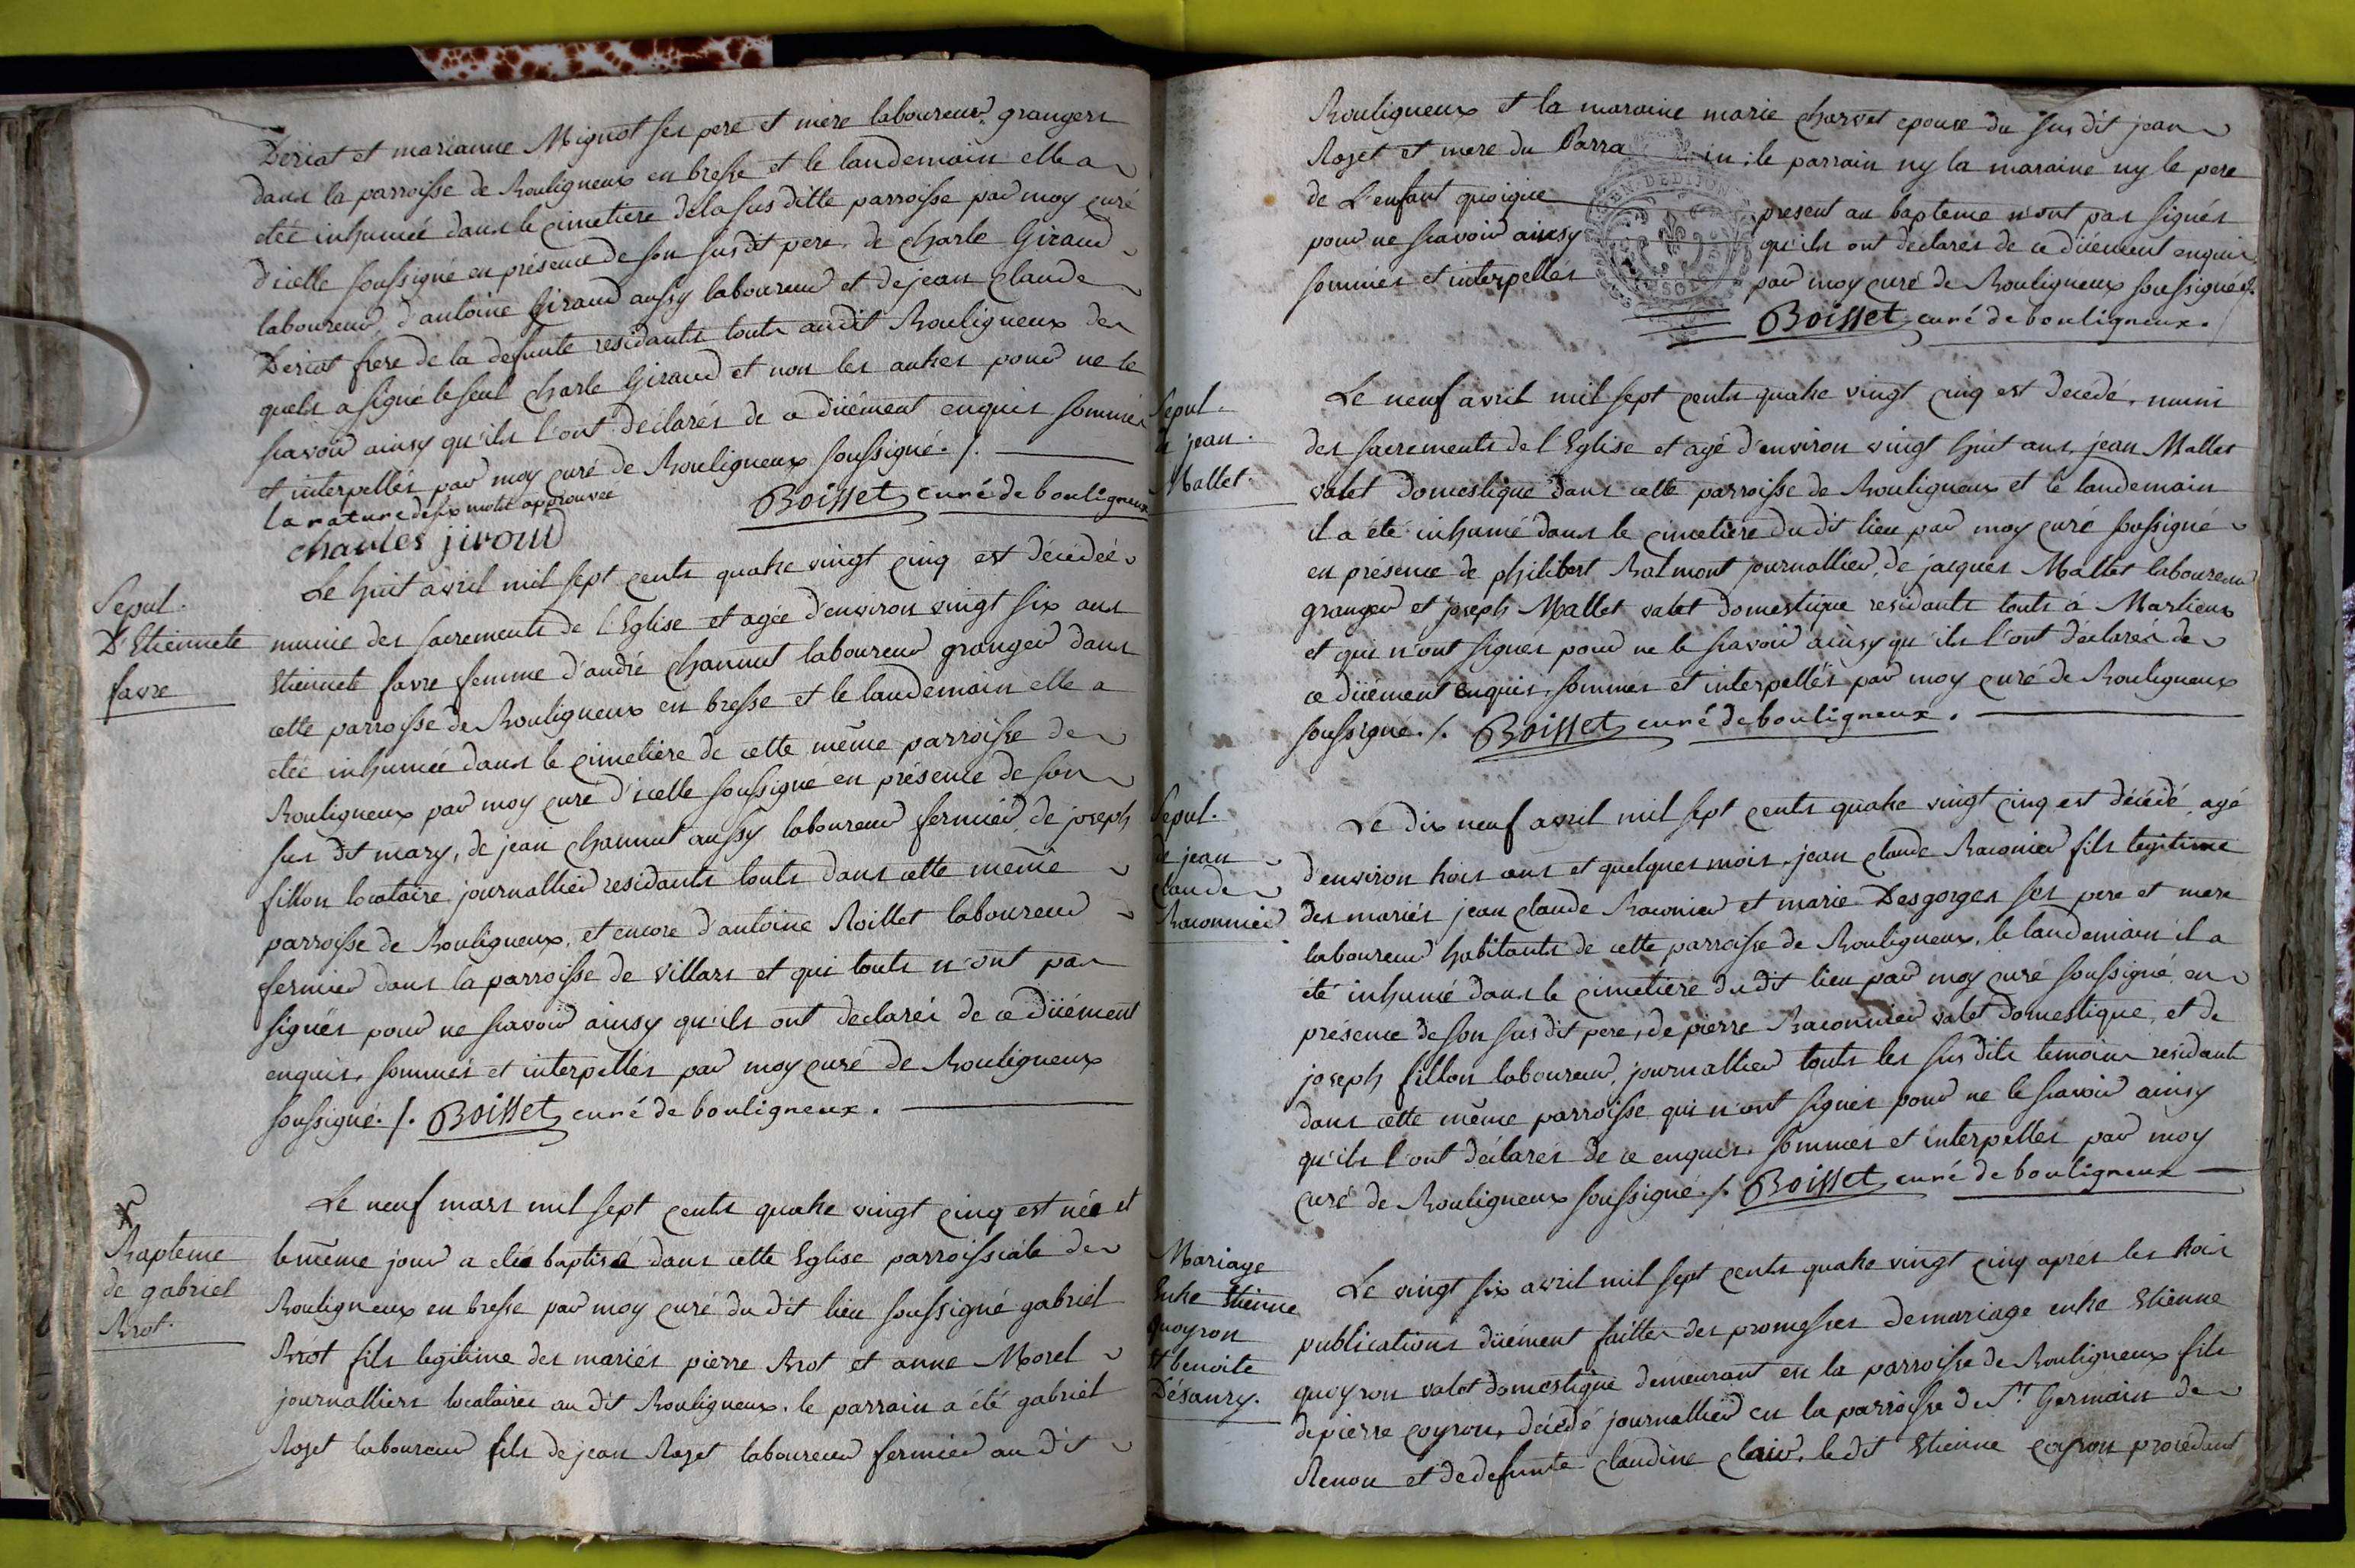 Deriat et marianne Mignot ses pere et mere laboureur grangers
dans la parroisse de Bouligneux en bresse et le landemain elle a
eteé inhumeé dans le cimetiere de la sus ditte parroisse par moy curé
d'icelle soussigné en présence de son sus dit pere, de charle Giraud
laboureur, d'antoine Giraud aussy laboureur et de jean claude
Deriat frere de la defunte residants touts au dit Bouligneux des
quels a signé le seul charle Giraud et non les autres pour ne le
scavoir ainsy qu'ils l'ont déclarés de ce düement enquis sommés
et interpellés par moy curé de Bouligneux soussigné./.
la rature de six mots approuvee
Boisset curé de bouligneux
charles jiroud
Sepul.
D'Etiennete
favre
Le huit avril mil sept cents quatre vingt cinq est décédeé
munie des sacrements de l'Eglise et agée d'environ vingt six ans
Etiennete favre femme d'andré channut laboureur granger dans
cette parroisse de Bouligneux en bresse et le landemain elle a
eteé inhumeé dans le cimetiere de cette même parroisse de
Bouligneux par moy curé d'icelle soussigné en présence de son
sus dit mary, de jean channut aussy laboureur fermier, de joseph
fillon locataire journallier residants touts dans cette même
parroisse de Bouligneux, et encore d'antoine Roillet laboureur
fermier dans la parroisse de villars et qui touts n'ont pas
signés pour ne scavoir ainsy qu'ils ont declarés de ce düement
enquis, sommés et interpellés par moy curé de Bouligneux
soussigné./. Boisset curé de bouligneux.
Bapteme
de gabriel
Brot.
Le neuf mars mil sept cents quatre vingt cinq est née et
le même jour a eteé baptisé dans cette Eglise parroissiale de
Bouligneux en bresse par moy curé du dit lieu soussigné gabriel
Brot fils legitime des mariés pierre Brot et anne Morel
journalliers locataires au dit Bouligneux. le parrain a été gabriel
Roset laboureur fils de jean Roset laboureur fermier au dit
Bouligneux et la maraine marie charvet epouse du sus dit jean
Roset et mere du Parra in; le parrain ny la maraine ny le pere
de L'enfant quoique present au bapteme n'ont pas signés
pour ne scavoir ainsy qu'ils ont declarés de ce düement enquis,
sommés et interpellés par moy curé de Bouligneux soussigné./.
Boisset curé de bouligneux.
Sepul.
de jean
Mallet.
Le neuf avril mil sept cents quatre vingt cinq est decédé, muni
des sacrements de l'Eglise et agé d'environ vingt huit ans, jean Mallet
valet domestique dans cette parroisse de Bouligneux et le landemain
il a été inhumé dans le cimetiere du dit lieu par moy curé soussigné
en présence de philibert Balmont journallier, de jacques Mallet laboureur
granger et joseph Mallet valet domestique residants touts à Marlieux
et qui n'ont signés pour ne le scavoir ainsy qu'ils l'ont déclarés de
ce düement enquis, sommés et interpellés par moy curé de Bouligneux
soussigné./. Boisset curé de bouligneux.
Sepul.
de jean
claude
Raconnier
Le dix neuf avril mil sept cents quatre vingt cinq est décédé, agé
d'environ trois ans et quelques mois, jean claude Raconier fils legitime
des mariés jean claude Raconier et marie Desgorges ses pere et mere
laboureur habitants de cette parroisse de Bouligneux, le landemain il a
été inhumé dans le cimetiere du dit lieu par moy curé soussigné en
présence de son sus dit pere, de pierre Raconnier valet domestique, et de
joseph fillon laboureur, journallier touts les sus dits temoins residants
dans cette même parroisse qui n'ont signés pour ne le scavoir ainsy
qu'ils l'ont déclarés de ce enquis, sommés et interpellés par moy
curé de Bouligneux soussigné./. Boisset curé de bouligneux
Mariage
Entre Etienne
quoyron
et benoite
Désanry.
Le vingt six avril mil sept cents quatre vingt cinq aprés les trois
publications düement faittes des promesses de mariage entre Etienne
quoyron valet domestique demeurant en la parroisse de Bouligneux fils
de pierre coyron, décédé journallier en la parroisse de St. Germain de
Renon et de defunte claudine clair, le dit Etienne coyron procédant